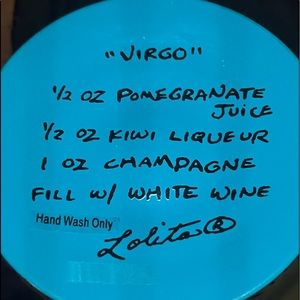 "VIRGO"
1/2 OZ POMEGRANATE
JUICE
1/2 OZ KIWI LIQUEUR
1 OZ CHAMPAGNE
FILL W/ WHITE WINE
Hand Wash Only
Lolita®